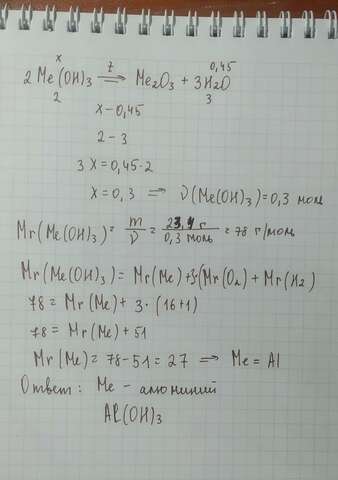 x 0,45
2 Me(OH)3 =t=> Me2O3 + 3H2O
2 3
x - 0,45
2 - 3
3 x = 0,45·2
x = 0,3 => ν(Me(OH)3) = 0,3 моль
Mr(Me(OH)3) = m/ν = 23,4 г/0,3 моль = 78 г/моль
Mr(Me(OH)3) = Mr(Me)+3·(Mr(O2) + Mr(H2)
78 = Mr(Me) + 3·(16+1)
78 = Mr(Me) + 51
Mr(Me) = 78-51 = 27 => Me = Al
Ответ: Me - алюминий
Al(OH)3